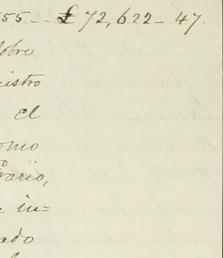 555-- £ 72,622- 47.
obre
istro
el
omo
rario,
e in=
ado